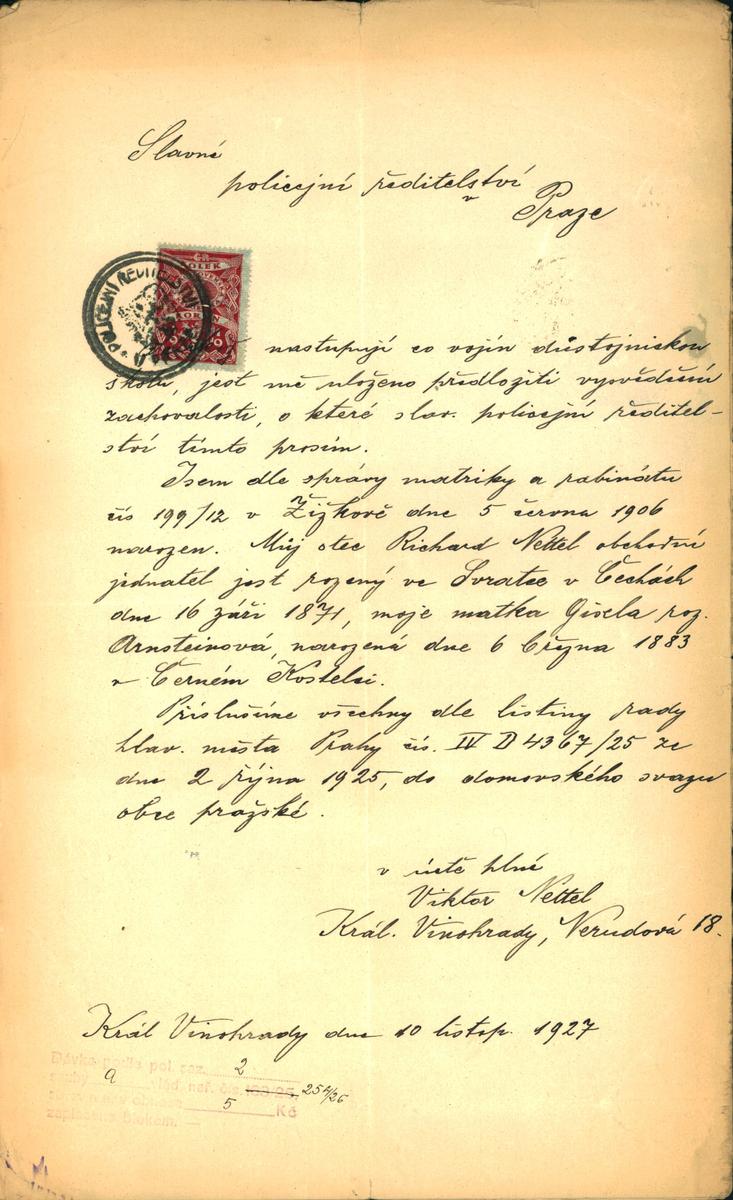 Slavné
policejní ředitelství
v Praze
POLICEJNÍ ŘEDITELSTVÍ
KOLEK
nastupují co vojín důstojnickou
školu, jest mě uloženo předložiti vysvědčení
zachovalosti, o které slav. policejní ředitel-
ství tímto prosím.
Jsem dle správy matriky a rabinátu
čís 199/12 v Žižkově dne 5 června 1906
narozen. Můj otec Richard Nettel obchodní
jednatel jest rozený ve Svratce v Čechách
dne 16 září 1871, moje matka Gisela roz.
Arnsteinová, narozená dne 6 března 1883
v Černém Kostelci.
Príslušíme všechny dle listiny rady
hlav. města Prahy čís. IV D 4367/25 ze
dne 2 října 1925, do domovského svazu
obce pražské.
v úctě
Viktor Nettel
Král. Vinohrady, Nerudová 18.
Král Vinohrady dne 10 listop. 1927
Dávka podle pol. saz. 2
a vlád. nař. čís. 163/25, 254/26
5 Kč
zaplacena šekem. —